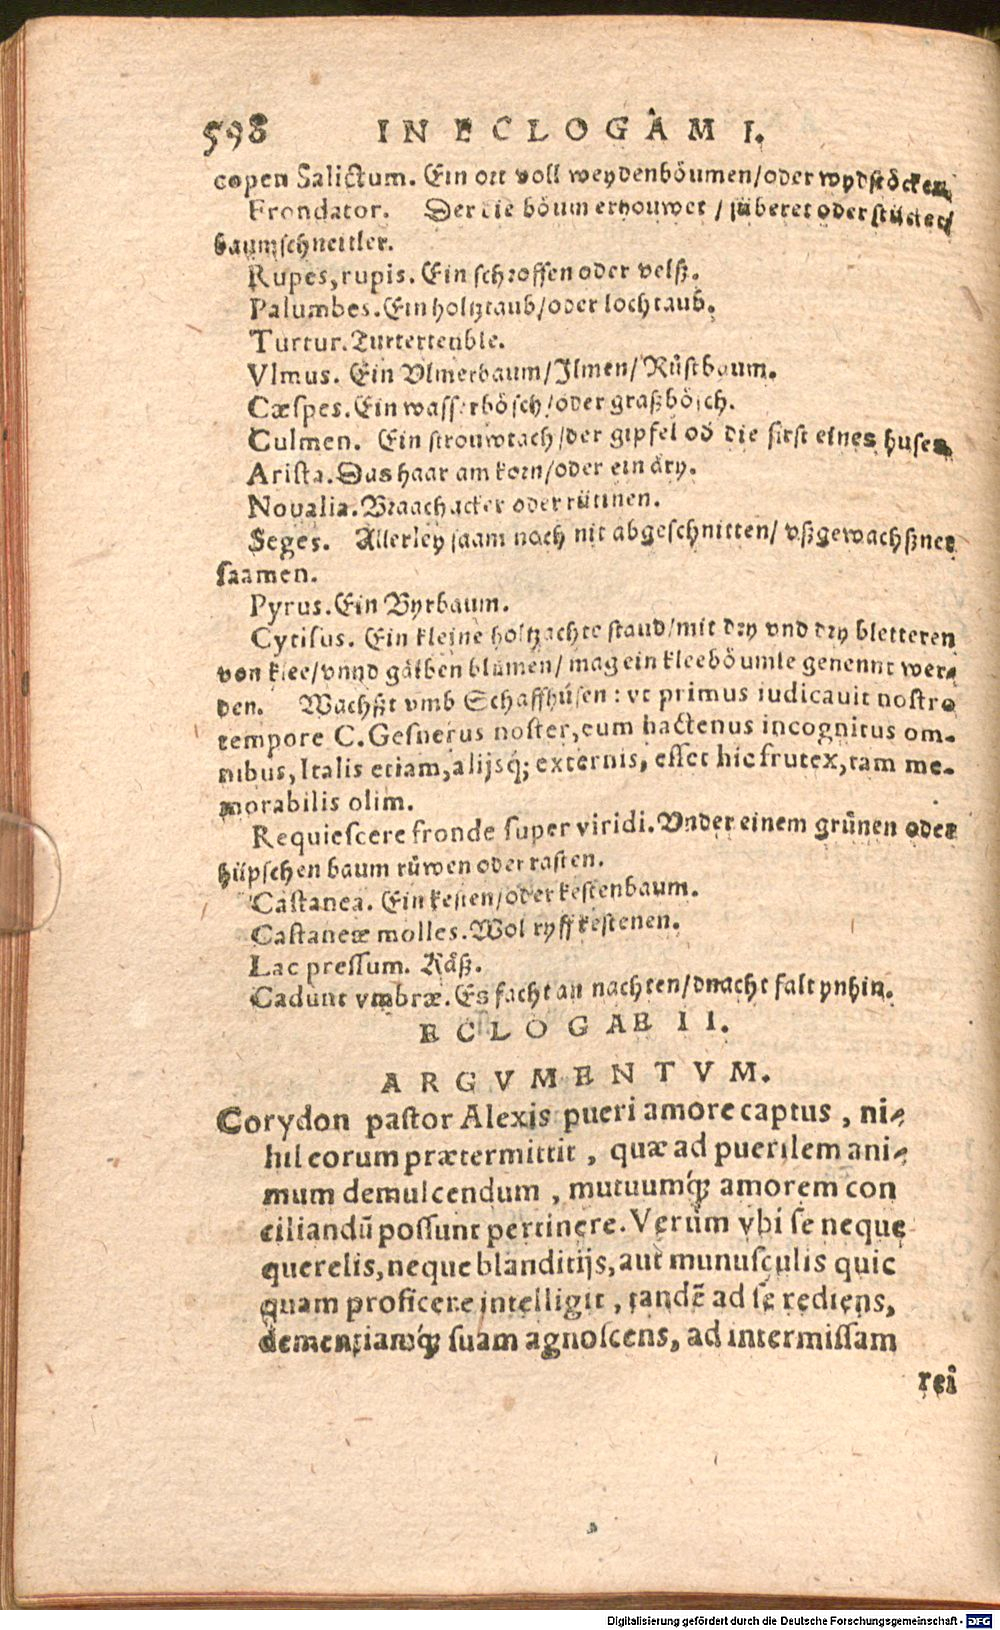 598 IN ECLOGAM I.
copen Salictum. Ein ort voll weydenböumen/oder wydstöcken.
Frondator. Der die böum erhouwet / süberet oder stücket/
baumschneitler.
Rupes, rupis. Ein schroffen oder velß.
Palumbes. Ein holtztaub/oder lochtaub.
Turtur. Turterteuble.
Vlmus. Ein Vlmerbaum/Ilmen/Růstbaum.
Cæspes. Ein wasserbösch/oder graßbösch.
Culmen. Ein strouwtach/der gipfel od die first eines huses.
Arista. Das haar am korn/oder ein äry.
Noualia. Braachacker oder rütinen.
Seges. Allerley saam noch nit abgeschnitten/ vßgewachßnet
saamen.
Pyrus. Ein Byrbaum.
Cytisus. Ein kleine holtzachte staud/mit dry vnd dry bletteren
von klee/vnnd gälben blůmen/ mag ein kleeböumle genennt wer-
den. Wachßt vmb Schaffhúsen: vt primus iudicauit nostro
tempore C. Gesnerus noster, cum hactenus incognitus om-
nibus, Italis etiam, alijsq́; externis, esset hic frutex, tam me-
morabilis olim.
Requiescere fronde super viridi. Vnder einem grůnen oder
hüpschen baum růwen oder rasten.
Castanea. Ein kesten/oder kestenbaum.
Castaneæ molles. Wol ryff kestenen.
Lac pressum. Käß.
Cadunt vmbræ. Es facht an nachten/dnacht falt ynhin.
ECLOGAE II.
ARGVMENTVM.
Corydon pastor Alexis pueri amore captus, ni-
hil eorum prætermittit, quæ ad puerilem ani-
mum demulcendum, mutuumq́; amorem con
ciliandū possunt pertinere. Verùm vbi se neque
querelis, neque blanditijs, aut munusculis quic
quam proficere intelligit, tandē ad se rediens,
dementiamq́; suam agnoscens, ad intermissam
rei
Digitalisierung gefördert durch die Deutsche Forschungsgemeinschaft - DFG